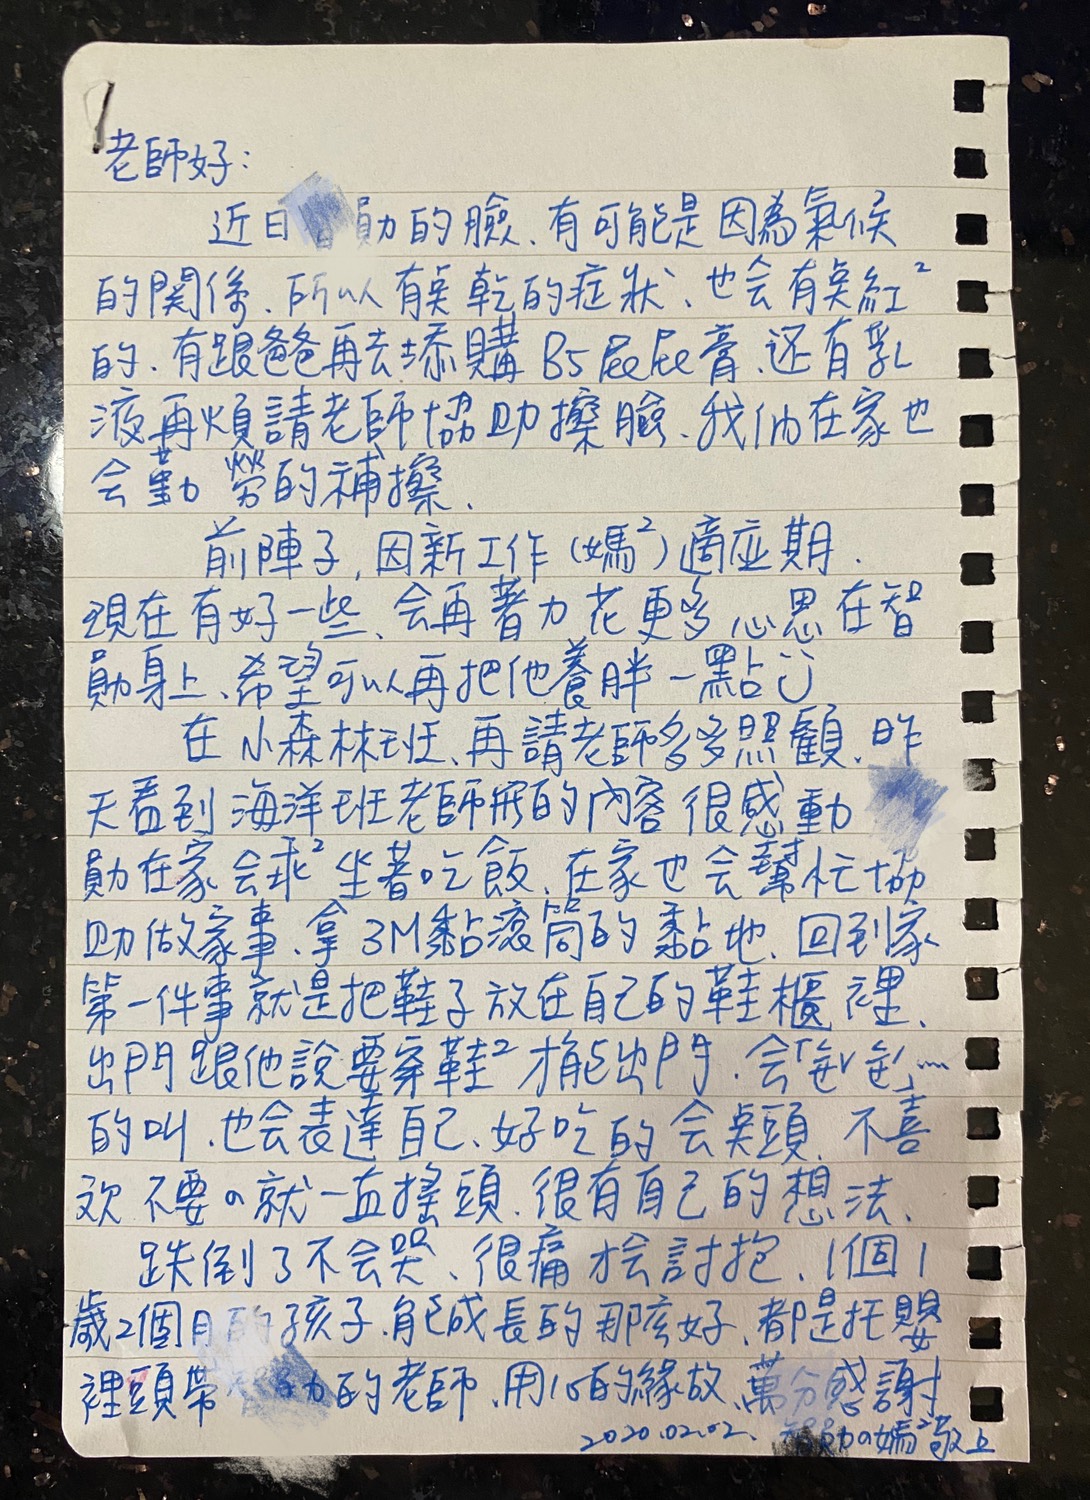 老師好：
近日勛的臉、有可能是因為氣候
的関係、所以有点乾的症狀、也会有点紅²
的、有跟爸爸再去添購B5屁屁膏、还有乳
液再煩請老師協助擦臉、我們在家也
会勤勞的補擦、
前陣子，因新工作(媽²)適应期．
現在有好一些、会再著力花更多心思在智
勛身上、希望可以再把他養胖一點
在小森林班、再請老師多多照顧、昨
天看到海洋班老師的內容很感動
勛在家会乖²坐著吃飯、在家也会幫忙協
助做家事、拿3M黏滾筒的黏地、回到家
第一件事就是把鞋子放在自己的鞋櫃裡、
出門跟他說要穿鞋²才能出門、会「ㄝˋㄝˋ」…
的叫、也会表達自己、好吃的会点頭、不喜
欢不要の就一直搖頭、很有自己的想法、
跌倒了不会哭、很痛才会討抱、1個1
歲2個月的孩子、能成長的那広好、都是托嬰
裡頭帶的老師、用心的緣故、萬分感謝
2020.02.02、勛の媽²敬上